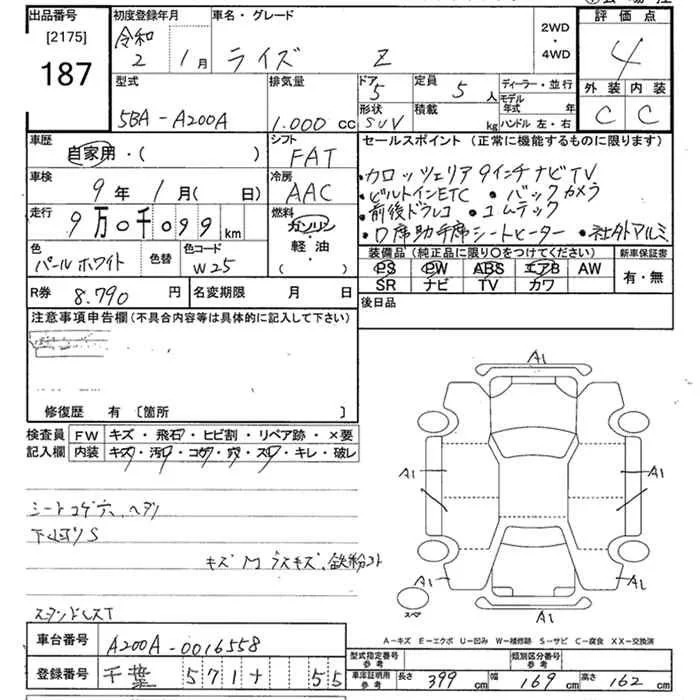 出品番号
[2175]
187
初度登録年月
令和
2 1月
車名・グレード
ライズ Z
2WD
・
4WD
評価点
4
外装 内装
C C
型式
5BA-A200A
排気量
1.000 cc
ドア
5
形状
SUV
定員
5 人
積載
kg
ディーラー・並行
モデル
年式 年
ハンドル 左・右
車歴
自家用・( )
シフト
FAT
車検
9年 1月(日)
冷房
AAC
走行
9万0千099 km
燃料
ガソリン
軽油
( )
色
パールホワイト
色替
色コード
W25
R券 8.790 円
名変期限 月 日
セールスポイント(正常に機能するものに限ります)
・カロッツェリア9インチナビTV
・ビルトインETC ・バックカメラ
・前後ドラレコ ・コムテック
・席助手席シートヒーター ・社外アルミ
装備品(純正品に限り○をつけてください)
新車保証書
PS PW ABS エアB AW
SR ナビ TV カワ
有・無
後日品
注意事項申告欄(不具合内容等は具体的に記入して下さい)
修復歴 有 〔箇所 〕
検査員
記入欄
FW キズ・飛石・ヒビ割・リペア跡・×要
内装 キズ・汚レ・コゲ・穴・スレ・キレ・破レ
シートコゲ穴、ヘタリ
キズM ラスキズ、鉄粉
A1
A1
A1
A1
A1
A1
A-キズ E-エクボ U-凹み W-補修跡 S-サビ C-腐食 XX-交換済
車台番号
A200A-0016558
登録番号
千葉 571 55
型式指定番号
参考
類別区分番号
参考
車庫証明用
参考
長さ 399 cm
幅 169 cm
高さ 162 cm